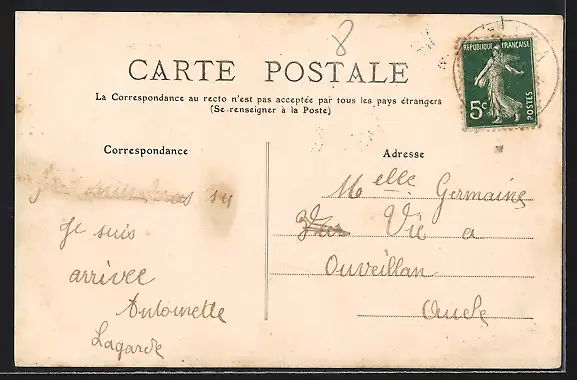 8
CARTE POSTALE
La Correspondance au recto n'est pas acceptée par tous les pays étrangers
(Se renseigner à la Poste)
RÉPUBLIQUE FRANÇAISE
5c
POSTES
Correspondance
Je suis
arrivee
Antoinette
Lagarde
Adresse
Melle Germaine
Vié a
Ouveillan
Aude